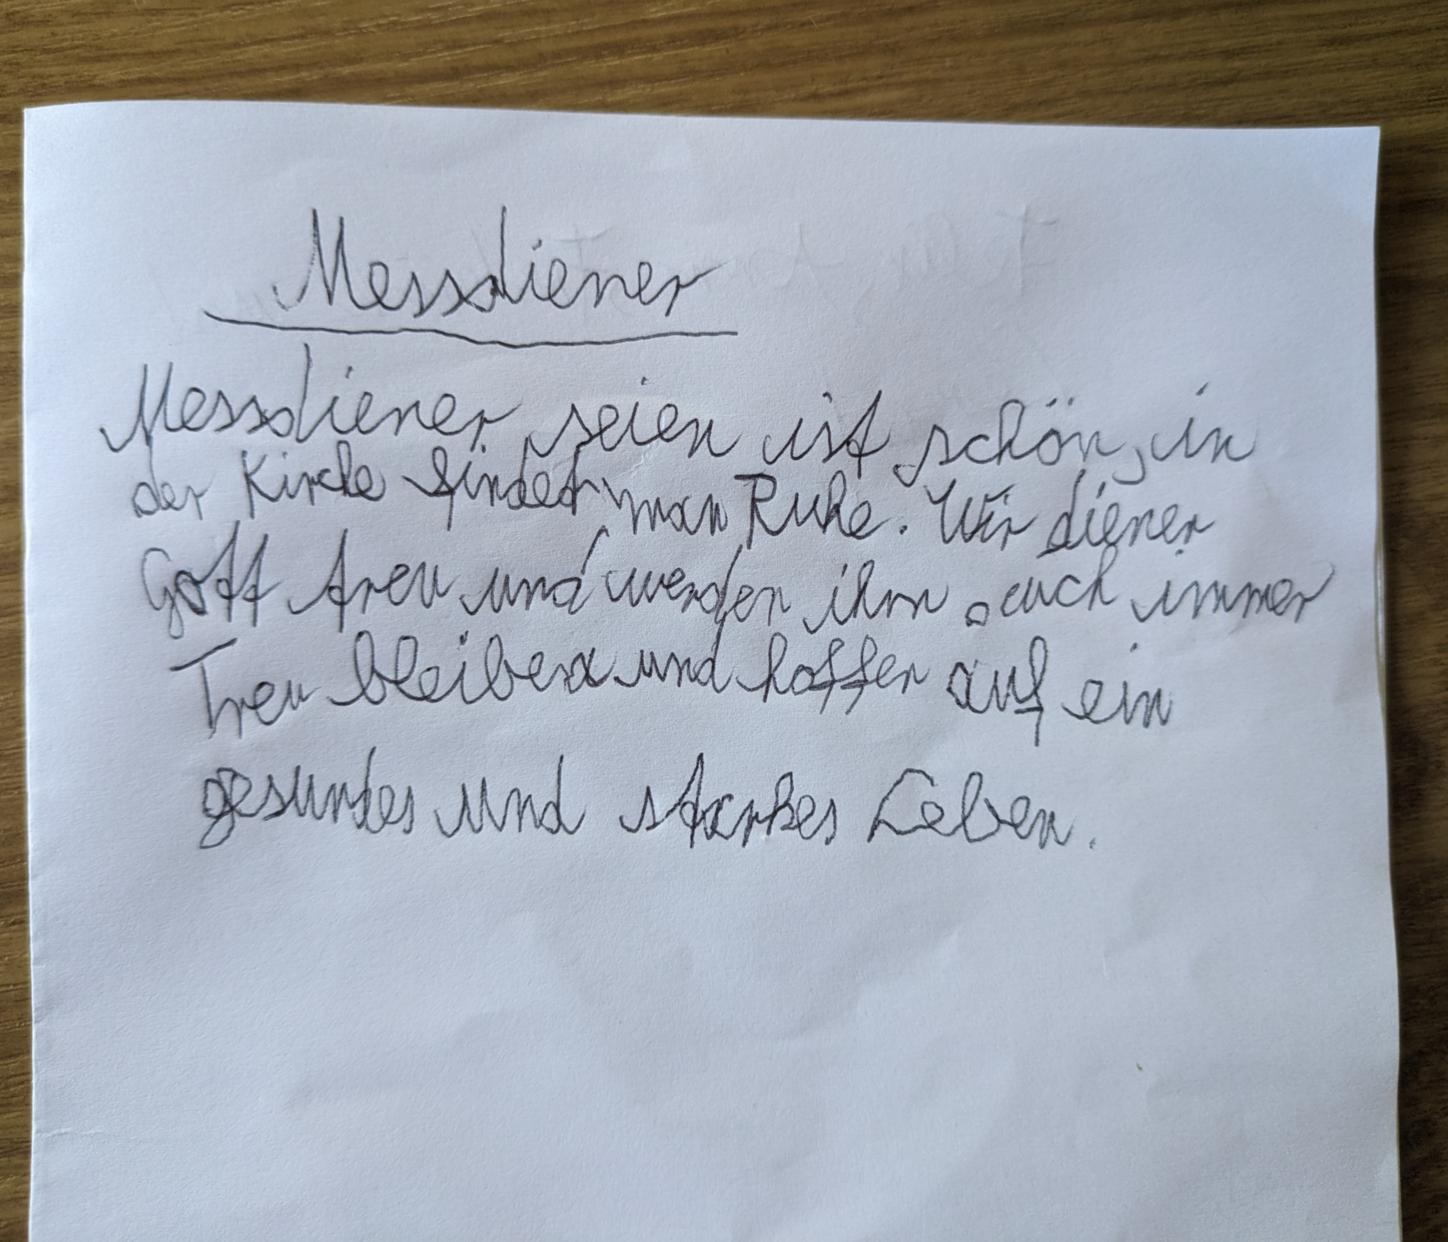 Messdiener
Messdiener seien ist schön, in
der Kirche findet man Ruhe. Wir diener
Gott treu und werden ihm auch immer
Treu bleiben und hoffen auf ein
gesundes und starkes Leben.